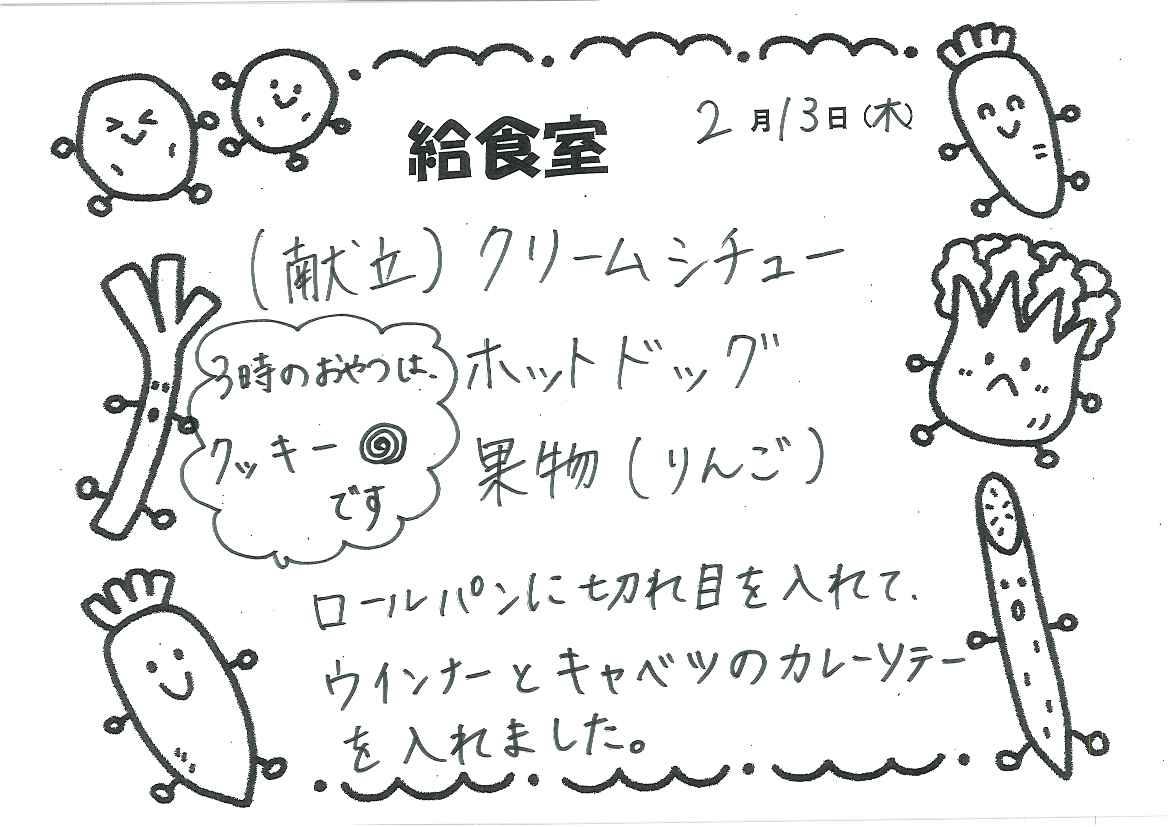 給食室
2月13日(木)
(献立)クリームシチュー
ホットドッグ
果物(りんご)
3時のおやつは、
クッキー
です
ロールパンに切れ目を入れて、
ウインナーとキャベツのカレーソテー
を入れました。